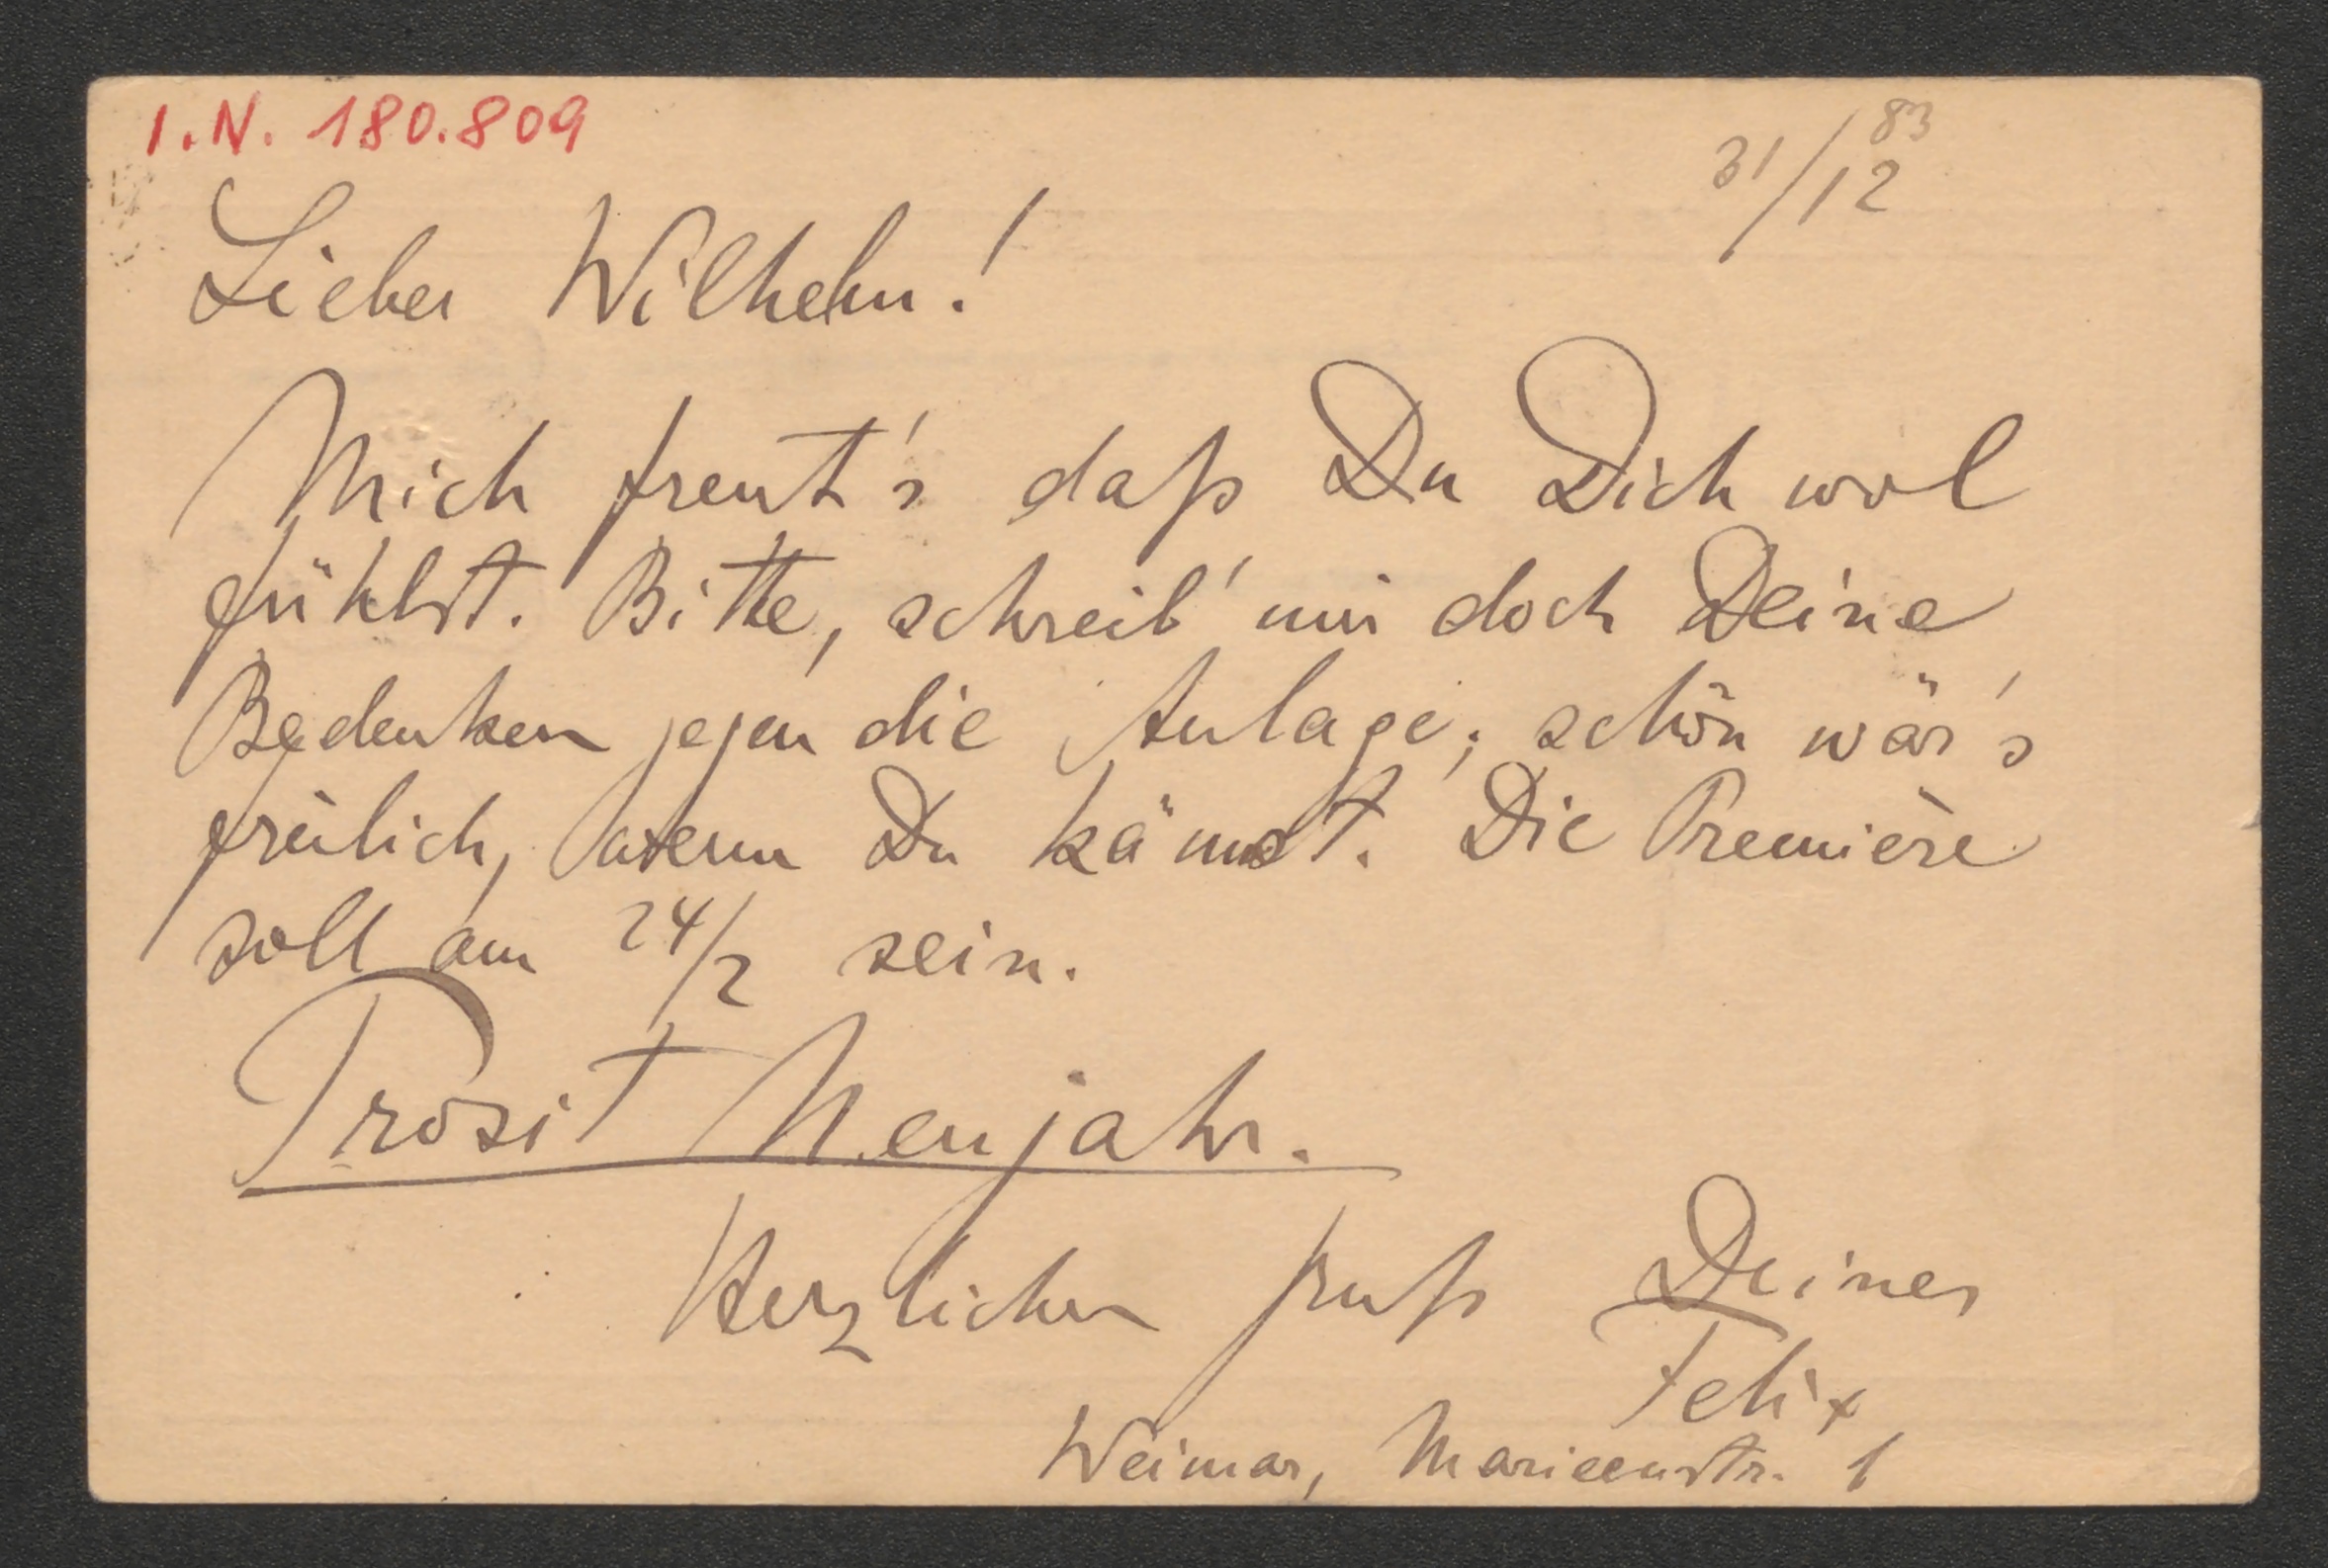 I.N. 180.809
31/12 83
Lieber Wilhelm!
Mich freut's daß Du Dich wol
fühlst. Bitte, schreib' mir doch Deine
Bedenken gegen die Anlage; schön wär's
freilich, wenn Du kämst. Die Première
soll am 24/2 sein.
Prosit Neujahr.
Herzlichen Gruß Deines
Felix
Weimar, Marienstr. 1